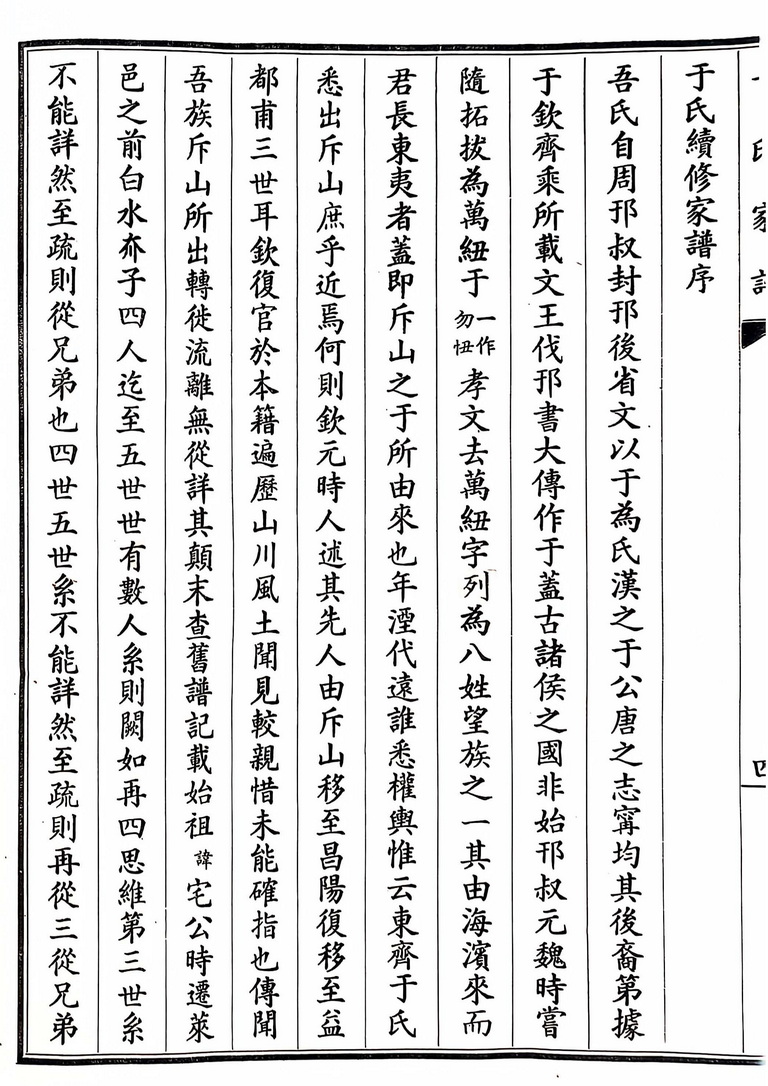 于氏續修家譜序
吾氏自周邘叔封邘後省文以于為氏漢之于公唐之志甯均其後裔第據
于欽齊乘所載文王伐邘書大傳作于蓋古諸侯之國非始邘叔元魏時嘗
隨拓拔為萬紐于一作勿忸孝文去萬紐字列為八姓望族之一其由海濱來而
君長東夷者蓋即斥山之于所由來也年湮代遠誰悉權輿惟云東齊于氏
悉出斥山庶乎近焉何則欽元時人述其先人由斥山移至昌陽復移至益
都甫三世耳欽復官於本籍遍歷山川風土聞見較親惜未能確指也傳聞
吾族斥山所出轉徙流離無從詳其顛末查舊譜記載始祖諱宅公時遷萊
邑之前白水夼子四人迄至五世世有數人系則闕如再四思維第三世系
不能詳然至疏則從兄弟也四世五世系不能詳然至疏則再從三從兄弟
氏家
四